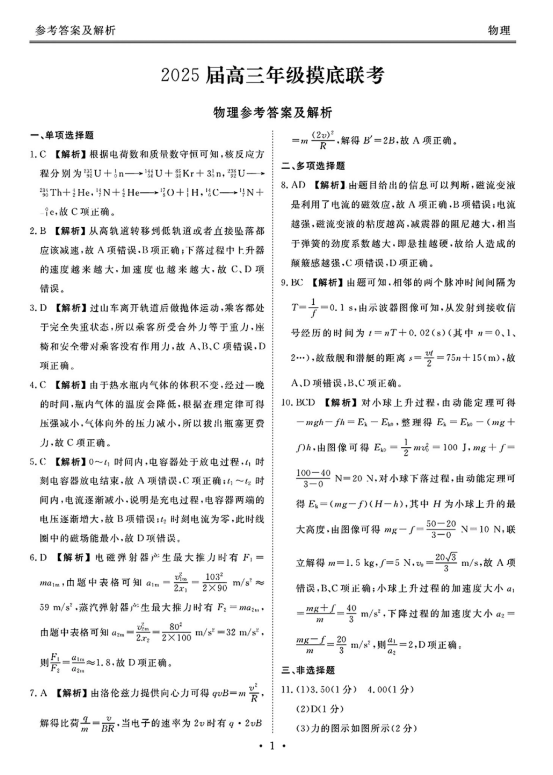 参考答案及解析 物理
2025 届高三年级摸底联考
物理参考答案及解析
一、单项选择题
1. C 【解析】根据电荷数和质量数守恒可知,核反应方
程分别为
2. B 【解析】从高轨道转移到低轨道或者直接坠落都
应该减速,故 A 项错误,B 项正确;下落过程中上升器
的速度越来越大,加速度也越来越大,故 C、D 项
错误。
3. D 【解析】过山车离开轨道后做抛体运动,乘客都处
于完全失重状态,所以乘客所受合外力等于重力,座
椅和安全带对乘客没有作用力,故 A、B、C 项错误,D
项正确。
4. C 【解析】由于热水瓶内气体的体积不变,经过一晚
的时间,瓶内气体的温度会降低,根据查理定律可得
压强减小,气体向外的压力减小,所以拔出瓶塞更费
力,故 C 项正确。
5. C 【解析】0～t₁ 时间内,电容器处于放电过程,t₁ 时
刻电容器放电结束,故 A 项错误,C 项正确;t₁～t₂ 时
间内,电流逐渐减小,说明是充电过程,电容器两端的
电压逐渐增大,故 B 项错误;t₂ 时刻电流为零,此时线
圈中的磁场能最小,故 D 项错误。
6. D 【解析】电磁弹射器产生最大推力时有 F₁ =
ma₁ₘ,由题中表格可知 a₁ₘ = v₁ₘ²/2x₁ = 103²/(2×90) m/s² ≈
59 m/s²,蒸汽弹射器产生最大推力时有 F₂ = ma₂ₘ,
由题中表格可知 a₂ₘ = v₂ₘ²/2x₂ = 80²/(2×100) m/s² = 32 m/s²,
则 F₁/F₂ = a₁ₘ/a₂ₘ ≈ 1.8,故 D 项正确。
7. A 【解析】由洛伦兹力提供向心力可得 qvB = m v²/R,
解得比荷 q/m = v/BR,当电子的速率为 2v 时有 q · 2vB
= m (2v)²/R,解得 B′ = 2B,故 A 项正确。
二、多项选择题
8. AD 【解析】由题目给出的信息可以判断,磁流变液
是利用了电流的磁效应,故 A 项正确,B 项错误;电流
越强,磁流变液的粘度越高,减震器的阻尼越大,相当
于弹簧的劲度系数越大,即悬挂越硬,故给人造成的
颠簸感越强,C 项错误,D 项正确。
9. BC 【解析】由题可知,相邻的两个脉冲时间间隔为
T = 1/f = 0.1 s,由示波器图像可知,从发射到接收信
号经历的时间为 t = nT + 0.02(s)(其中 n = 0、1、
2…),故敌舰和潜艇的距离 s = vt/2 = 75n + 15(m),故
A、D 项错误,B、C 项正确。
10. BCD 【解析】对小球上升过程,由动能定理可得
−mgh − fh = Eₖ − Eₖ₀,整理得 Eₖ = Eₖ₀ − (mg +
f)h,由图像可得 Eₖ₀ = 1/2 mv₀² = 100 J,mg + f =
(100−40)/(3−0) N = 20 N,对小球下落过程,由动能定理可
得 Eₖ = (mg − f)(H − h),其中 H 为小球上升的最
大高度,由图像可得 mg − f = (50−20)/(3−0) N = 10 N,联
立解得 m = 1.5 kg,f = 5 N,v₀ = 20√3/3 m/s,故 A 项
错误,B、C 项正确;小球上升过程的加速度大小 a₁
= (mg+f)/m = 40/3 m/s²,下降过程的加速度大小 a₂ =
(mg−f)/m = 20/3 m/s²,则 a₁/a₂ = 2,D 项正确。
三、非选择题
11. (1)3.50(1 分) 4.00(1 分)
(2)D(1 分)
(3)力的图示如图所示(2 分)
· 1 ·